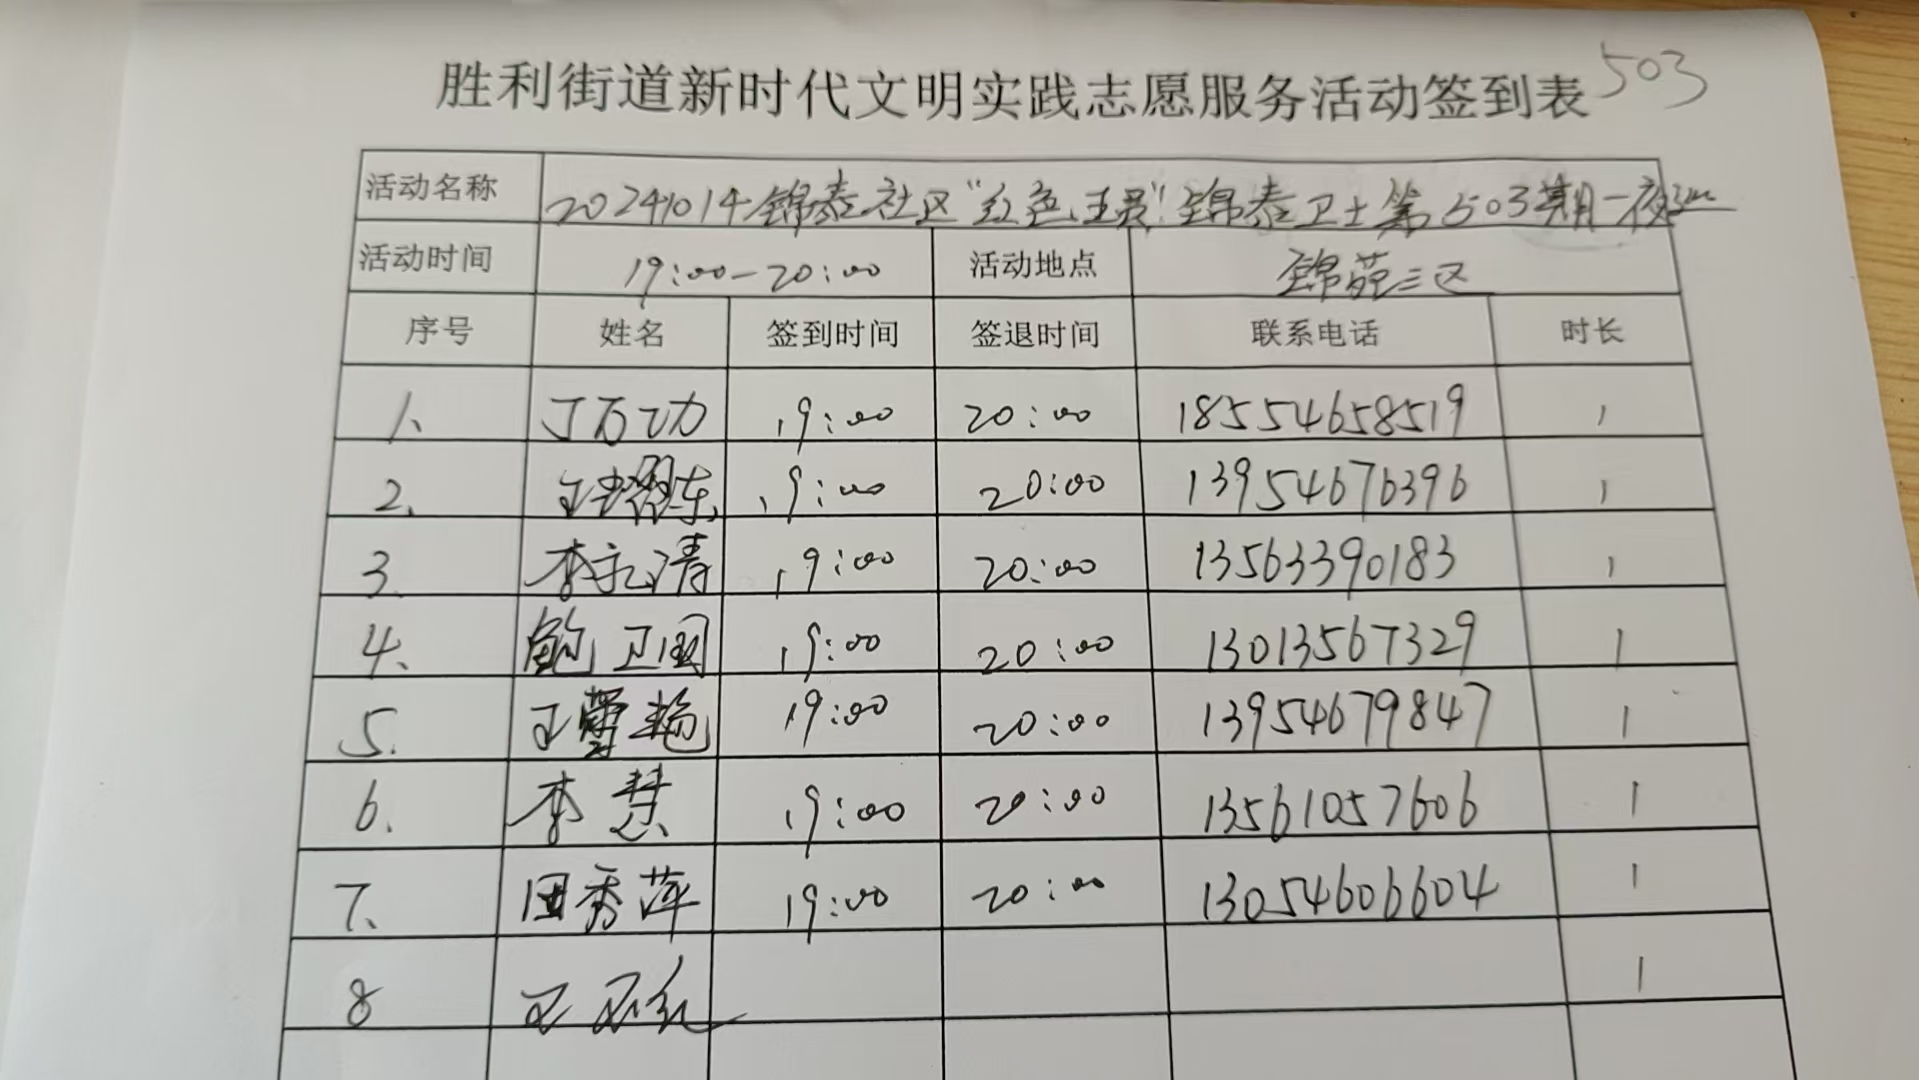 胜利街道新时代文明实践志愿服务活动签到表 503
活动名称 20241014锦泰社区"红色主题"锦泰卫士第503期一夜巡
活动时间 19:00-20:00 活动地点 锦苑三区
序号 姓名 签到时间 签退时间 联系电话 时长
1、 丁万功 19:00 20:00 18554658519 1
2、 19:00 20:00 13954676396 1
3、 李永清 19:00 20:00 13563390183 1
4、 鲍卫国 19:00 20:00 13013567329 1
5. 19:00 20:00 13954679847 1
6. 李慧 19:00 20:00 13561057606 1
7、 田秀萍 19:00 20:00 13054606604 1
8 1